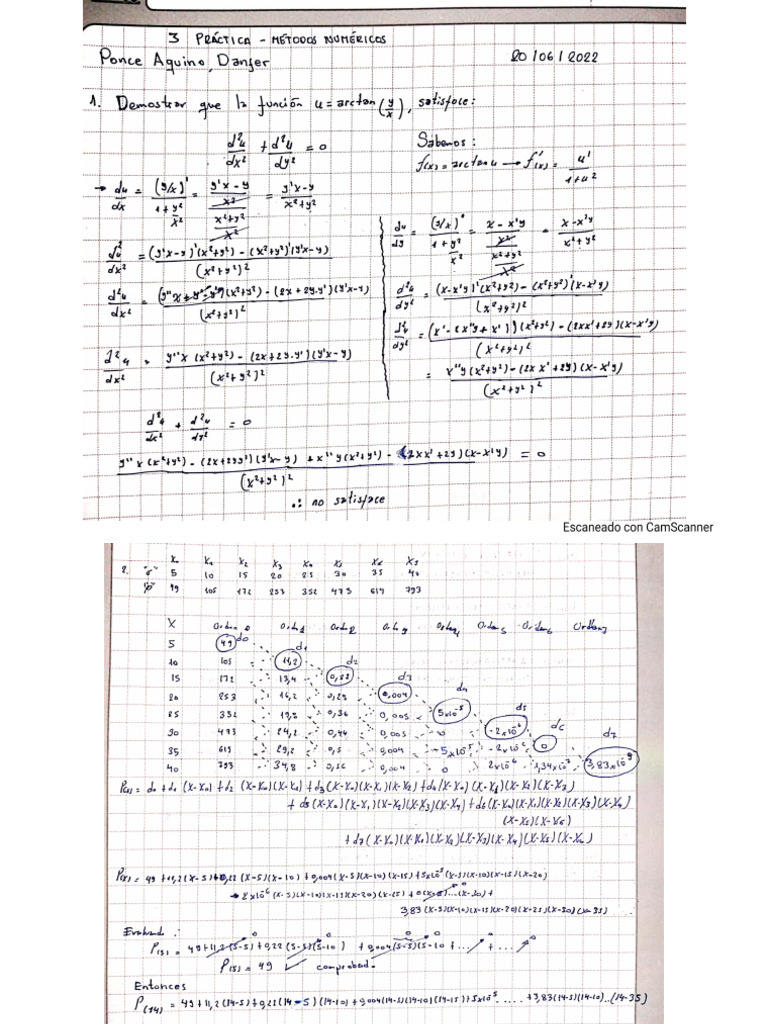 3 PRÁCTICA - MÉTODOS NUMÉRICOS
Ponce Aquino, Danfer 20/06/2022
1. Demostrar que la función u = arctan (y/x), satisface:
d²u/dx² + d²u/dy² = 0
Sabemos:
f(x) = arctan u → f'(x) = u'/1+u²
→ du/dx = (y/x)'/1+y²/x² = y'x-y/x²/x²+y²/x² = y'x-y/x²+y²
du/dy = (y/x)'/1+y²/x² = x-x'y/x²/x²+y²/x² = x-x'y/x²+y²
d²u/dx² = (y'x-y)'(x²+y²)-(x²+y²)'(y'x-y)/(x²+y²)²
d²u/dy² = (x-x'y)'(x²+y²)-(x²+y²)'(x-x'y)/(x²+y²)²
d²u/dx² = (y''x+y'-y')(x²+y²)-(2x+2y.y')(y'x-y)/(x²+y²)²
d²u/dy² = (x'-(x''y+x'))(x²+y²)-(2xx'+2y)(x-x'y)/(x²+y²)²
d²u/dx² = y''x(x²+y²)-(2x+2y.y')(y'x-y)/(x²+y²)²
= x''y(x²+y²)-(2xx'+2y)(x-x'y)/(x²+y²)²
d²u/dx² + d²u/dy² = 0
y''x(x²+y²)-(2x+2yy')(y'x-y)+x''y(x²+y²)-(2xx'+2y)(x-x'y)/(x²+y²)² = 0
∴ no satisface
Escaneado con CamScanner
X₀ X₁ X₂ X₃ X₄ X₅ X₆ X₇
2. 5 10 15 20 25 30 35 40
49 105 172 253 352 473 619 793
X Orden 0 Orden 1 Orden 2 Orden 3 Orden 4 Orden 5 Orden 6 Orden 7
5 49 d0
d1
10 105 11,2
d2
15 172 13,4 0,22
d3
20 253 16,2 0,28 0,004
d4
25 352 19,8 0,36 0,005 5x10⁻⁵
d5
30 473 24,2 0,44 0,005 0 -2x10⁻⁶
d6
35 619 29,2 0,5 0,004 -5x10⁻⁵ -2x10⁻⁶ 0
d7
40 793 34,8 0,56 0,004 0 2x10⁻⁶ 1,34x10⁻⁷ 3,83x10⁻⁹
P(x) = d0 + d1 (X-X0) + d2 (X-X0)(X-X1) + d3 (X-X0)(X-X1)(X-X2) + d4 (X-X0)(X-X1)(X-X2)(X-X3)
+ d5 (X-X0)(X-X1)(X-X2)(X-X3)(X-X4) + d6 (X-X0)(X-X1)(X-X2)(X-X3)(X-X4)
(X-X5)(X-X6)
+ d7 (X-X0)(X-X1)(X-X2)(X-X3)(X-X4)(X-X5)(X-X6)
P(x) = 49 + 11,2(X-5) + 0,22 (X-5)(X-10) + 0,004(X-5)(X-10)(X-15) + 5x10⁻⁵(X-5)(X-10)(X-15)(X-20)
- 2x10⁻⁶ (X-5)(X-10)(X-15)(X-20)(X-25) + 0(X-5)...(X-30) +
3,83(X-5)(X-10)(X-15)(X-20)(X-25)(X-30)(X-35)
Evaluand.:
P(5) = 49 + 11,2(5-5) + 0,22(5-5)(5-10) + 0,004(5-5)(5-10 + ... + ...
P(5) = 49 ✓ comprobad.
Entonces
P(14) = 49 + 11,2(14-5) + 0,22(14-5)(14-10) + 0,004(14-5)(14-10)(14-15) + 5x10⁻⁵ ..... + 3,83(14-5)(14-10)..(14-35)